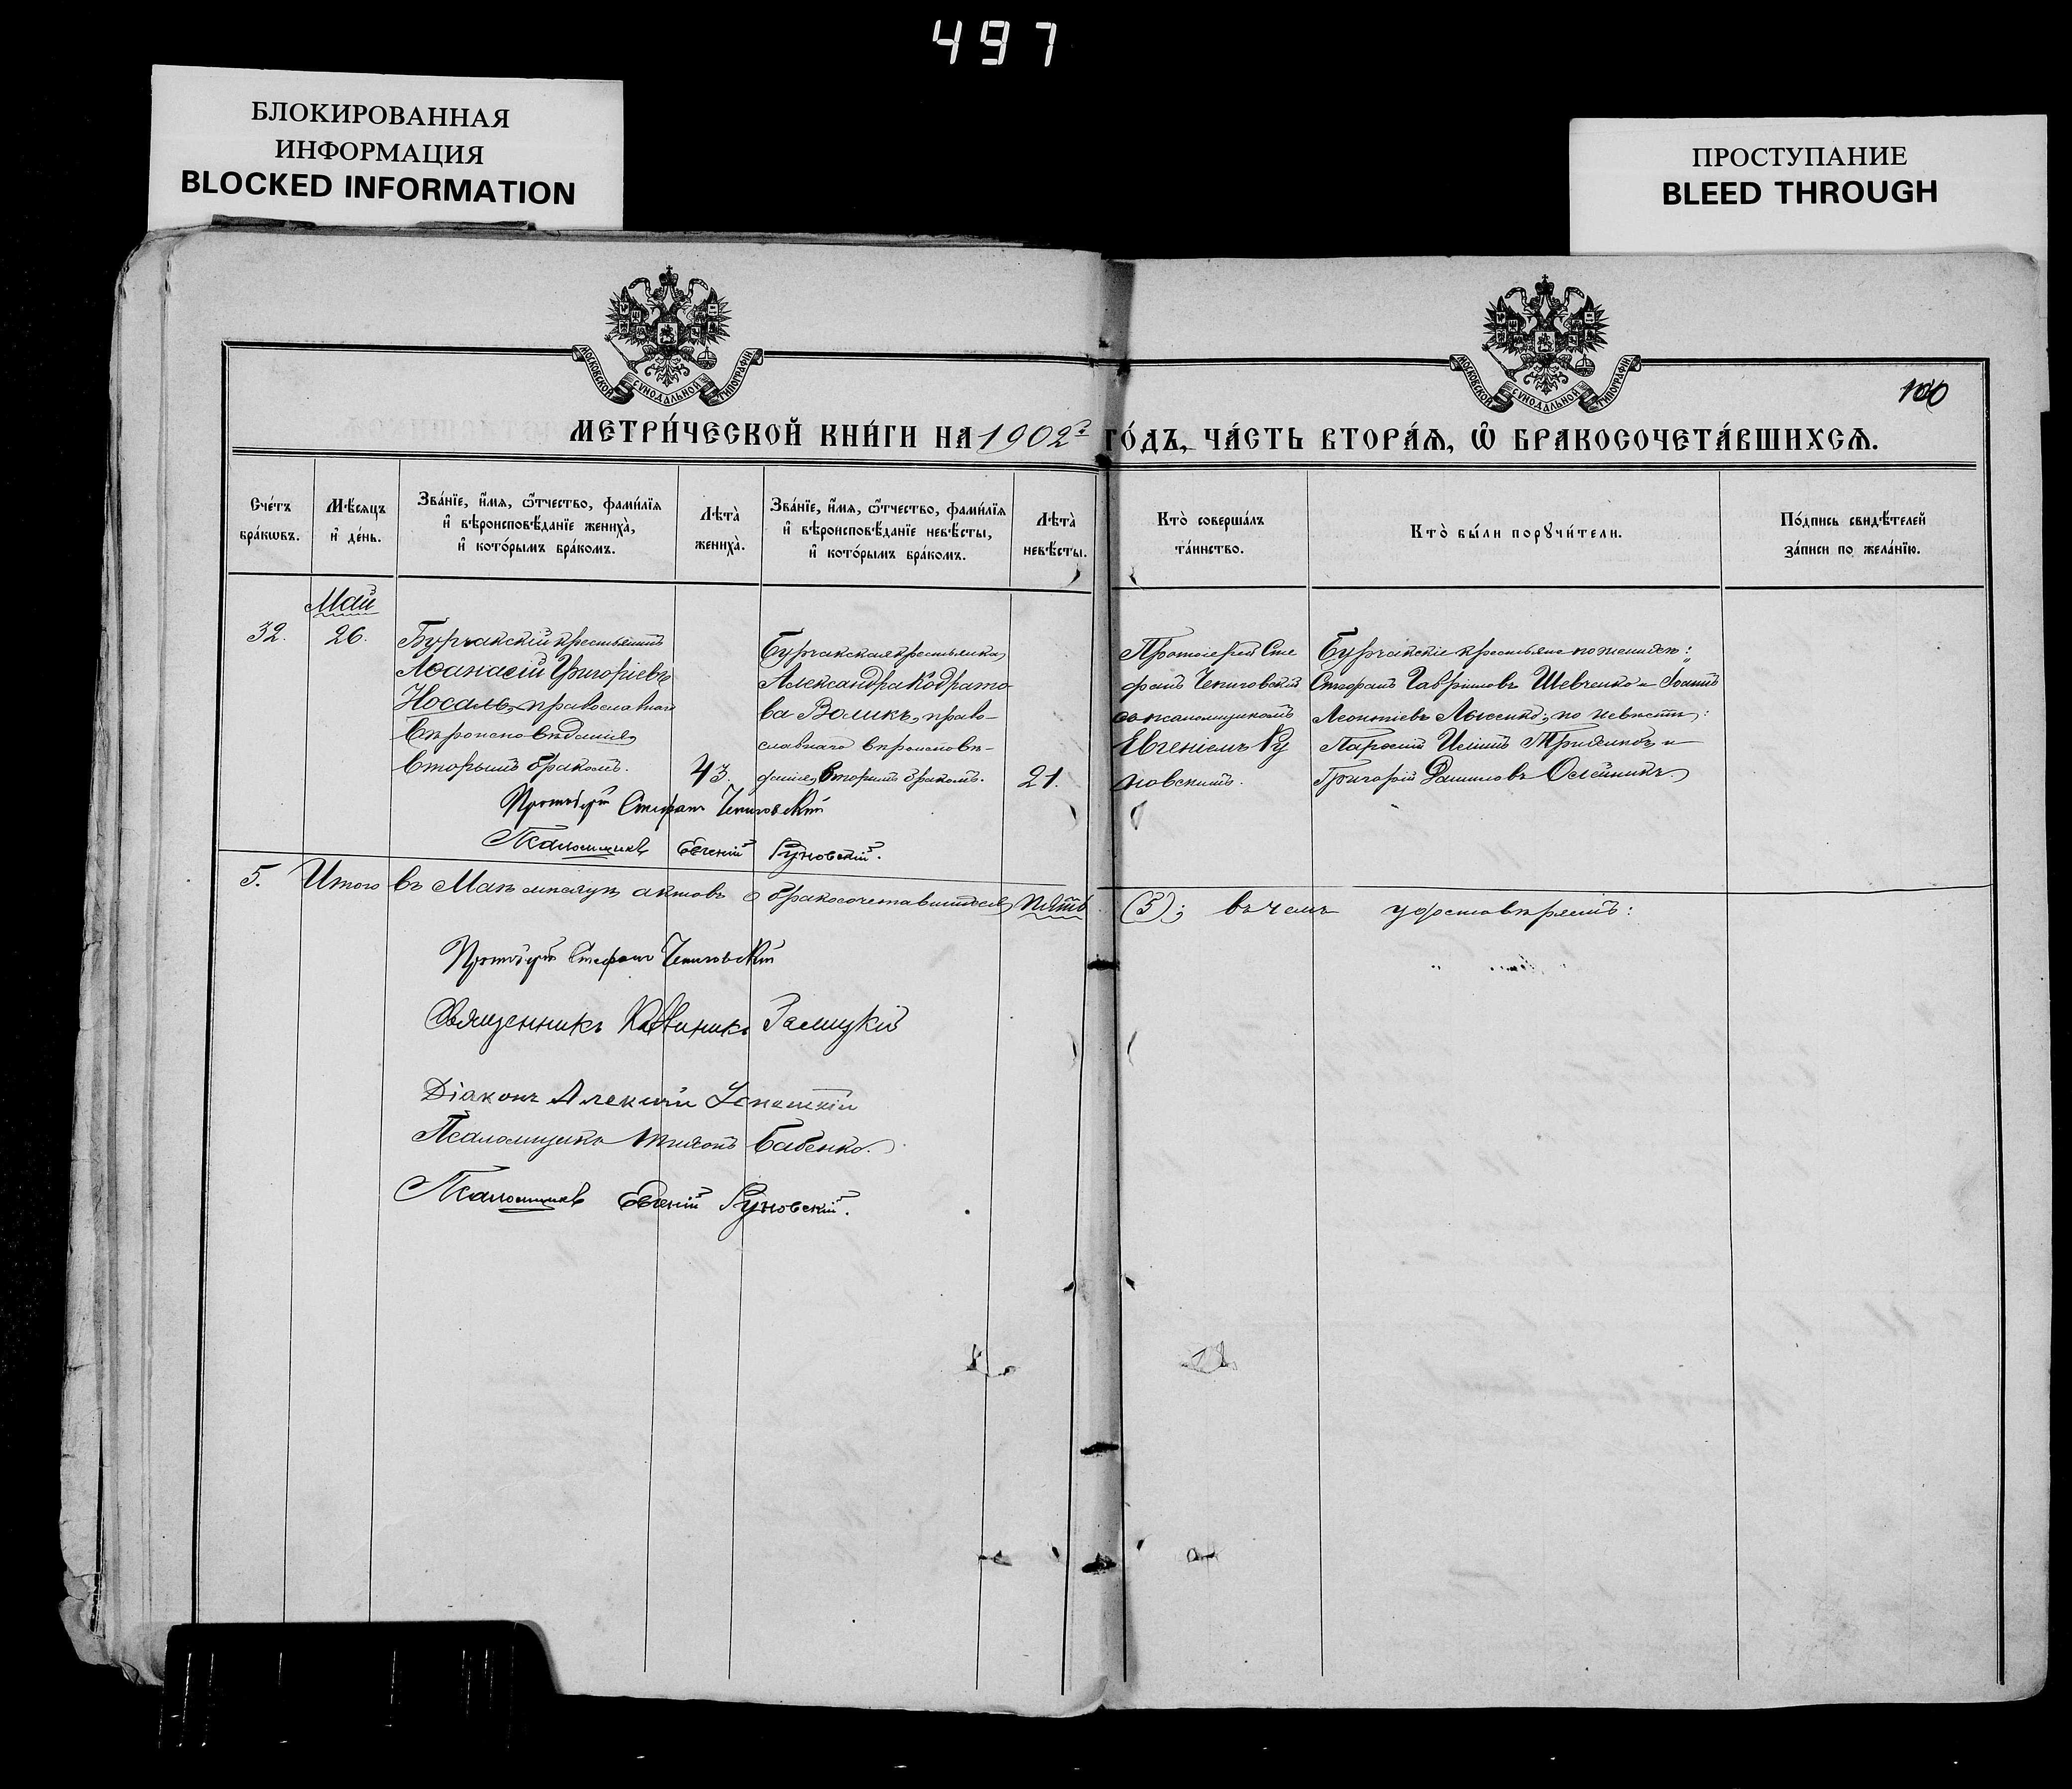 497
БЛОКИРОВАННАЯ
ИНФОРМАЦИЯ
BLOCKED INFORMATION
ПРОСТУПАНИЕ
BLEED THROUGH
МОСКОВСКОЙ СѴНОДАЛЬНОЙ ТИПОГРАФІИ
МОСКОВСКОЙ СѴНОДАЛЬНОЙ ТИПОГРАФІИ
100
МЕТРИ́ЧЕСКОЙ КНИ́ГИ НА 1902й ГО́ДЪ, ЧА́СТЬ ВТОРА́Ѧ, Ѽ БРАКОСОЧЕТА́ВШИХСѦ.
Сче́тъ
бра́кѡвъ.
Мѣ́сяцъ
и҆ де́нь.
Зва́нїе, и҆́мя, ѻ҆́тчество, фами́лїя
и҆ вѣроисповѣ́данїе жениха̀,
и҆ кото́рымъ бра́комъ.
Лѣта̀
жениха̀.
Зва́нїе, и҆́мя, ѻ҆́тчество, фами́лїя
и҆ вѣроисповѣ́данїе невѣ́сты,
и҆ кото́рымъ бра́комъ.
Лѣта̀
невѣ́сты.
Кто̀ соверша́лъ
та́инство.
Кто̀ бы́ли порꙋчи́тели.
По́дпись свидѣ́телей
за́писи по жела́нїю.
Май
32.
26.
Бурчакскій крестьянинъ
Аѳанасій Григоріевъ
Носаль, православнаго
вѣроисповѣданія,
вторымъ бракомъ.
43.
Бурчакская крестьянка,
Александра Кодрато-
ва Воликъ, право-
славнаго вѣроисповѣ-
данія, вторымъ бракомъ.
21.
Протоіерей Сте
фанъ Чепиговскій
съ псаломщикомъ
Евгеніемъ Ру
новскимъ.
Бурчакскіе крестьяне по женихѣ:
Стефанъ Гавриловъ Шевченко и Іоаннъ
Леонтіевъ Лысенко; по невѣстѣ:
Григорій Даниловъ Олейникъ.
Протоіерей Стефанъ Чепиговскій
Псаломщикъ Евгеній Руновскій.
5. Итого въ Маѣ мѣсяцѣ актовъ о бракосочетавшихся пять (5); въ чемъ удостовѣряемъ:
Протоіерей Стефанъ Чепиговскій
Священникъ Каллиникъ
Діаконъ Алексій
Псаломщикъ Тихонъ Бабенко.
Псаломщикъ Евгеній Руновскій.